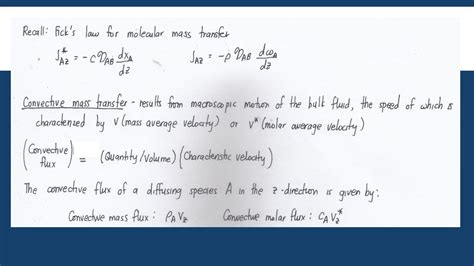 Recall: Fick's law for molecular mass transfer
J*Az = -c 𝒟AB dxA/dz    jAz = -ρ 𝒟AB dωA/dz
Convective mass transfer - results from macroscopic motion of the bulk fluid, the speed of which is
characterized by v (mass average velocity) or v* (molar average velocity)
(Convective flux) = (Quantity/Volume)(Characteristic velocity)
The convective flux of a diffusing species A in the z-direction is given by:
Convective mass flux: ρA vz    Convective molar flux: cA vz*